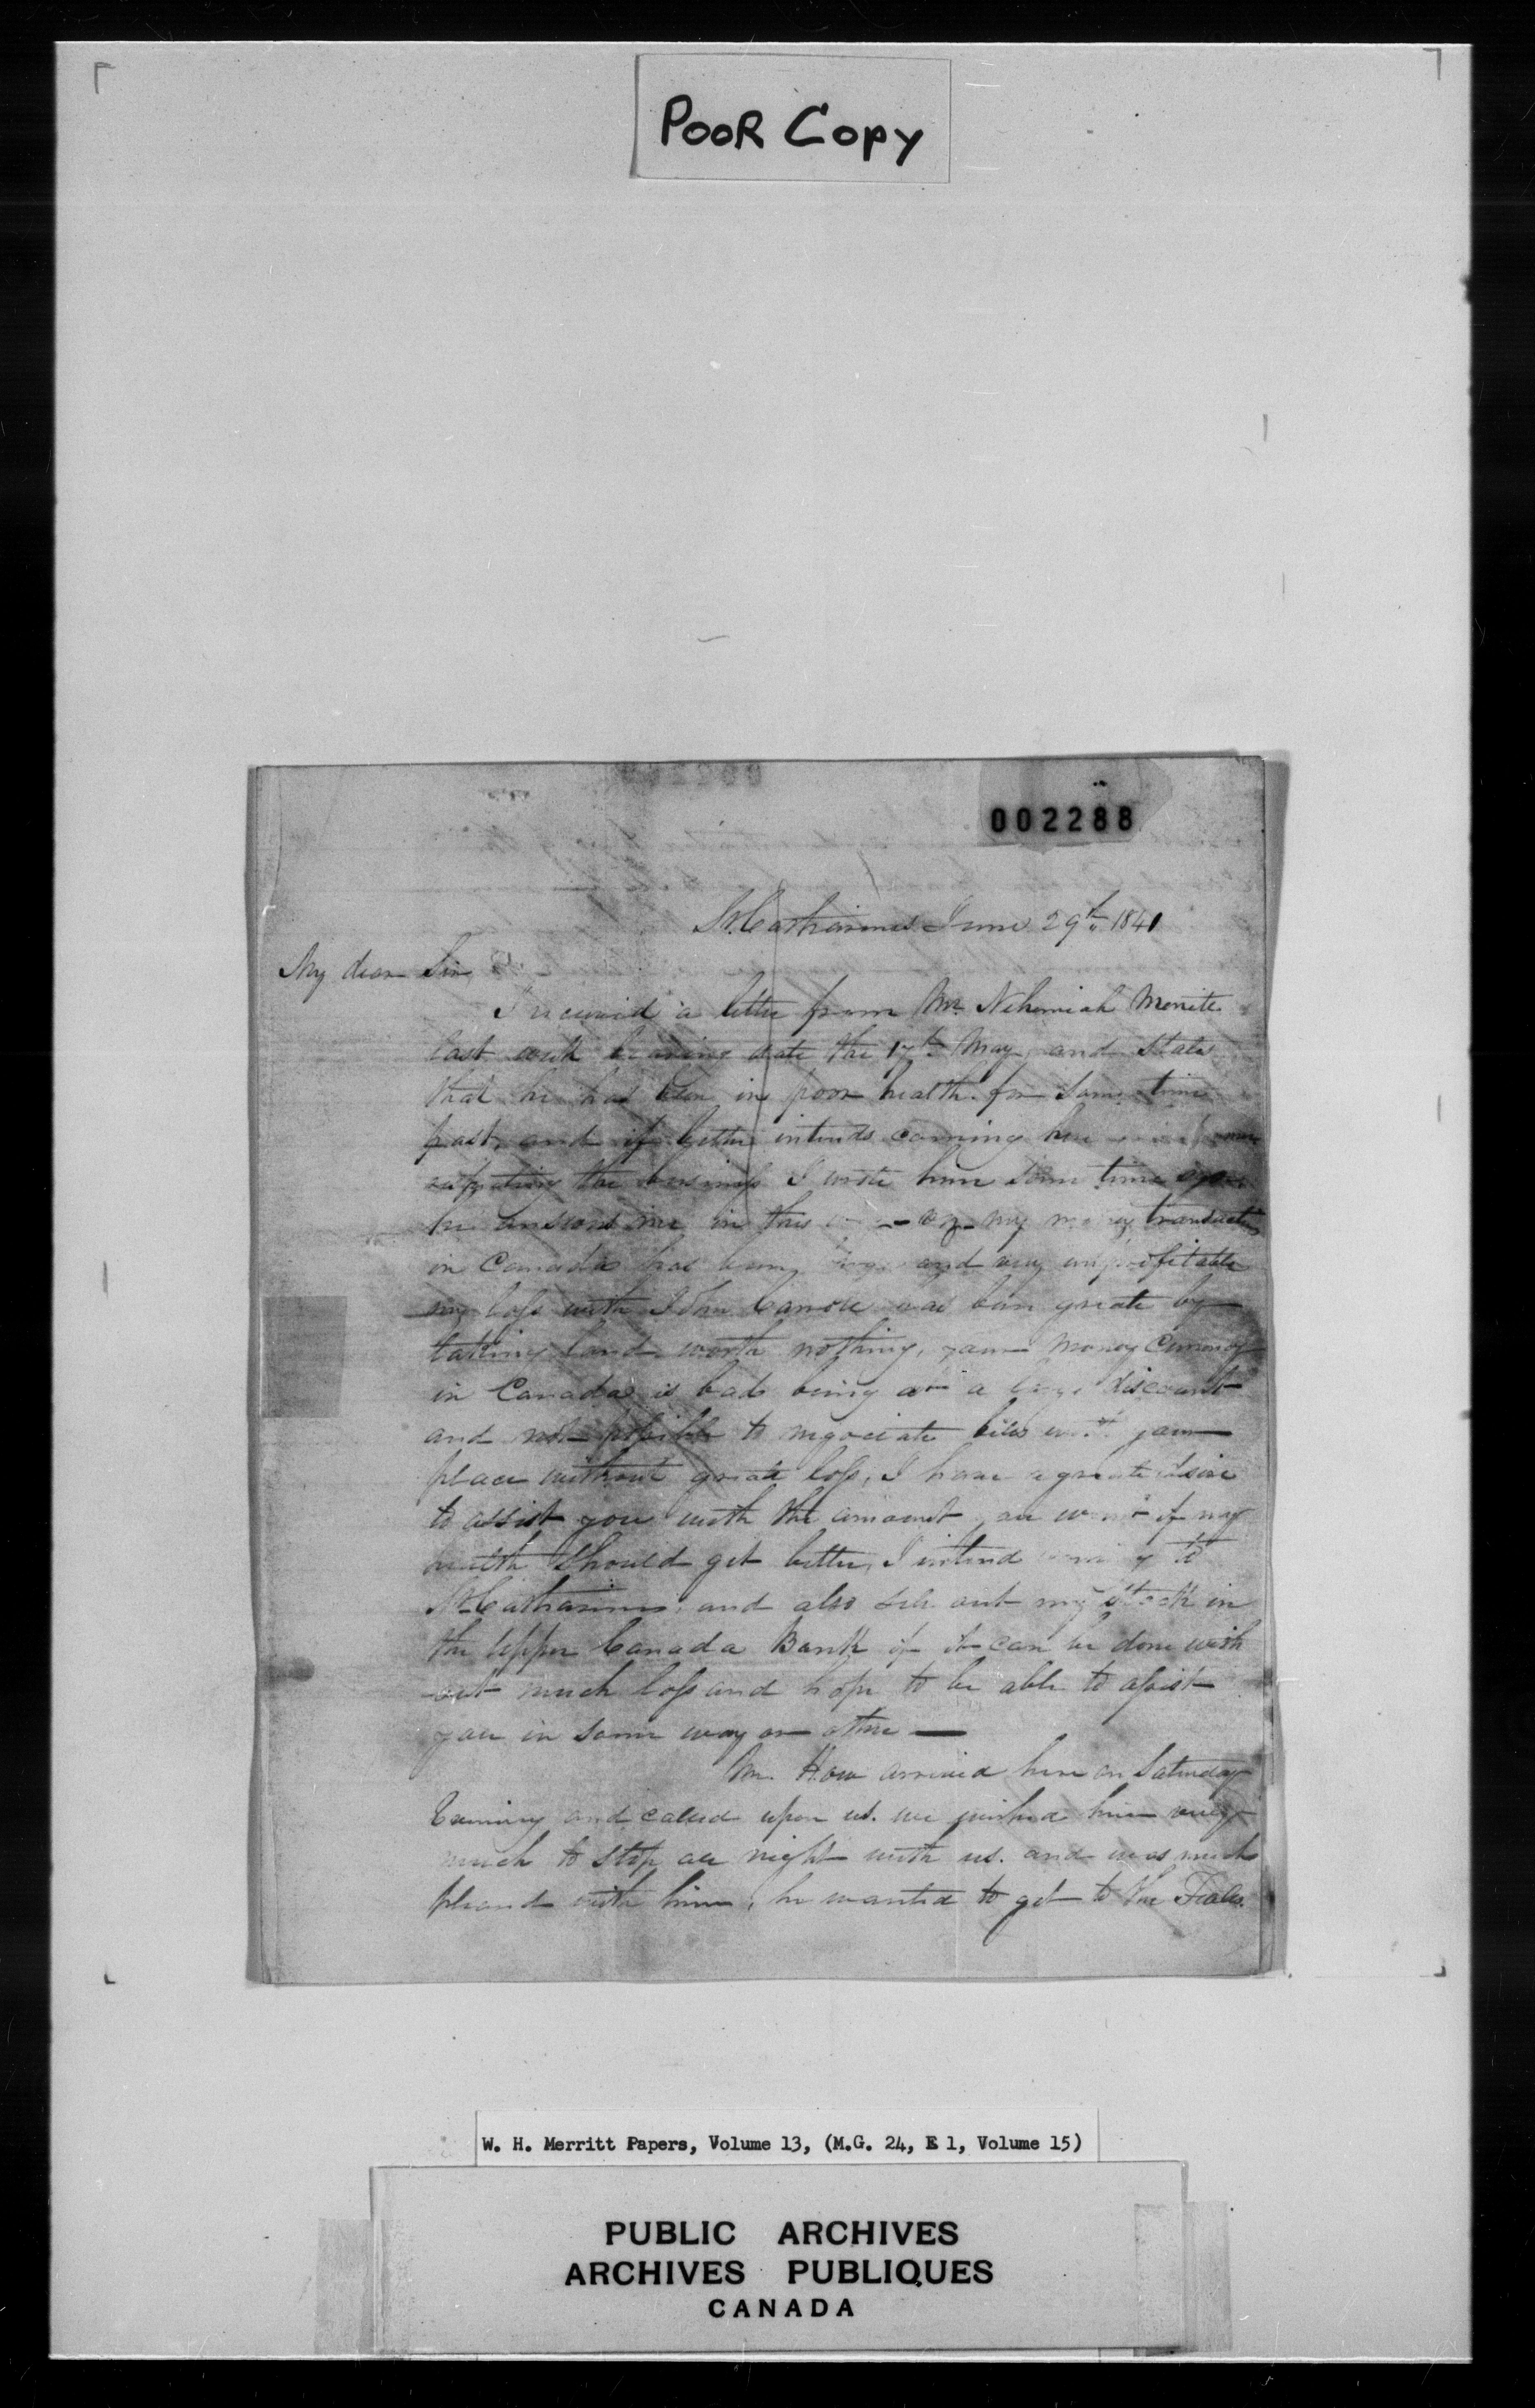 POOR COPY
002288
St. Catharines June 29th 1841
My dear Sir
I received a letter from Mr Nehemiah Merritt
last week bearing date the 17th May, and states
that he has been in poor health for some time
past, and if better intends coming here
respecting the business I wrote him some time ago
he answers me in this my money transactions
in Canada has been and very unprofitable
my loss with John has been greate by
taking land worth nothing, your money Currency
in Canada is bad being at a large discount
and not possible to negociate bills your
place without greate loss, I have a greate desire
to assist you with the amount you want if my
health should get better, I intend coming to
St Catharines, and also sell out my Stock in
the Upper Canada Bank if it can be done with
out much loss and hope to be able to assist
you in some way or other —
Mr. How arrived here on Saturday
Evening and called upon us. we wished him very
much to stop all night with us. and was much
pleased with him, he wanted to get to the Falls.
W. H. Merritt Papers, Volume 13, (M.G. 24, E 1, Volume 15)
PUBLIC ARCHIVES
ARCHIVES PUBLIQUES
CANADA